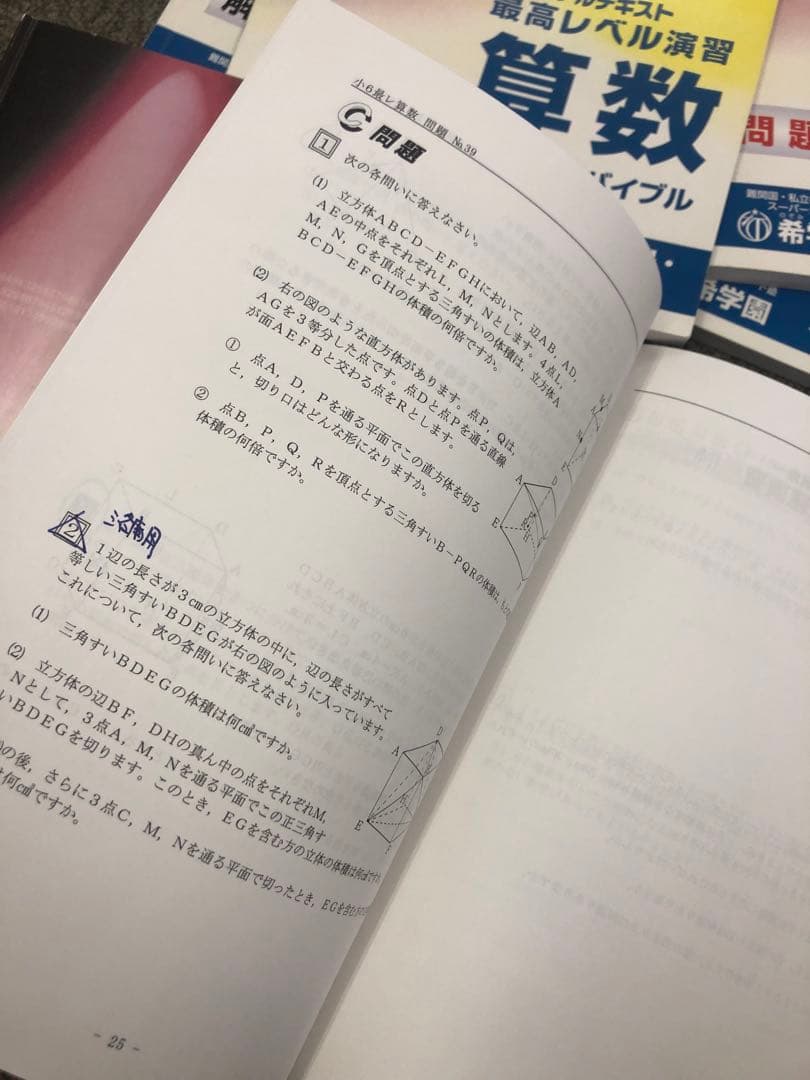 最高レベル演習
算数
バイブル
問題
難関国・私立
スーパー
希学
希学園
小6最レ算数 問題 №39
C問題
1 次の各問いに答えなさい。
(1) 立方体ABCD-EFGHにおいて，辺AB，AD，
AEの中点をそれぞれL，M，Nとします。4点L，
M，N，Gを頂点とする三角すいの体積は，立方体A
BCD-EFGHの体積の何倍ですか。
(2) 右の図のような直方体があります。点P，Qは，
AGを3等分した点です。点Dと点Pを通る直線
が面AEFBと交わる点をRとします。
① 点A，D，Pを通る平面でこの直方体を切る
と，切り口はどんな形になりますか。
② 点B，P，Q，Rを頂点とする三角すいB-PQRの体積は，
体積の何倍ですか。
A
D
E
H
2
1辺の長さが3㎝の立方体の中に，辺の長さがすべて
等しい三角すいBDEGが右の図のように入っています。
これについて，次の各問いに答えなさい。
(1) 三角すいBDEGの体積は何㎤ですか。
(2) 立方体の辺BF，DHの真ん中の点をそれぞれM，
Nとして，3点A，M，Nを通る平面でこの正三角す
いBDEGを切ります。このとき，EGを含む方の立体の体積は何㎤ですか
の後，さらに3点C，M，Nを通る平面で切ったとき，EGを含む
何㎤ですか。
A
D
E
F
- 25 -